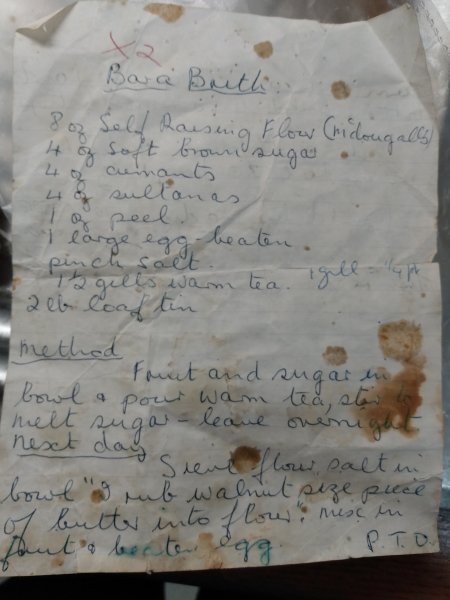 X2
Bara Brith
8 oz Self Raising Flour (McDougalls)
4 oz soft brown sugar
4 oz currants
4 oz sultanas
1 oz peel
1 large egg - beaten
pinch salt.
1½ gills warm tea. 1 gill = ¼ pt
2 lb loaf tin
Method
Fruit and sugar in
bowl & pour warm tea, stir to
melt sugar - leave overnight
Next day
Sieve flour, salt in
bowl "& rub walnut size piece
of butter into flour". mix in
fruit & beaten egg.
P.T.O.